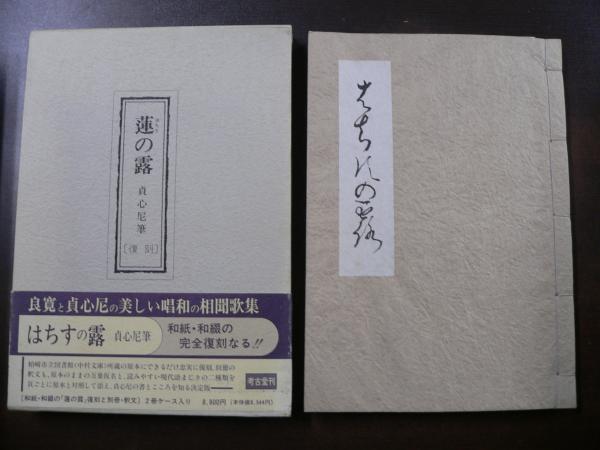 はちす
蓮の露
貞心尼筆
〔復刻〕
良寛と貞心尼の美しい唱和の相聞歌集
はちすの露 貞心尼筆
和紙・和綴の
完全復刻なる!!
柏崎市立図書館(中村文庫)所蔵の原本にできるだけ忠実に復刻。別冊の
釈文も、原本のままの万葉仮名と、読みやすい現代語まじりの二種類を
頁ごとに原本と対照して添え、貞心尼の書とこころを知る決定版
考古堂刊
〔和紙・和綴の「蓮の露」復刻と別冊・釈文〕2冊ケース入り 8,800円(本体8,544円)
はちすの露